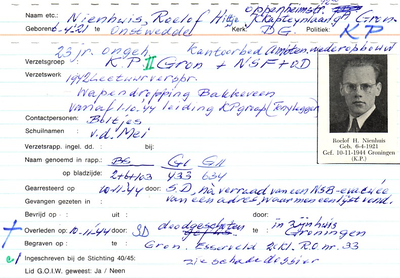 Naam etc.: Nienhuis, Roelof H Oppenheimstr. Gron.
Geboren: 6-4-21 Onstwedde Kerk: D.G. Politiek: KP
23 jr. ongeh. Kantoorbed wederopbouw
Verzetsgroep : K.P. II Gron + NSF + OD
Verzetswerk : 1942 lectuurverspr.
Wapendropping Bakkeveen
Vanaf 1.10.44 leiding KP groep
Contactpersonen: Boltjes
Schuilnaam : v.d. Mei
Verzetsrapp. ingel. dd. : bij:
Naam genoemd in rapp.: GI GII
op bladzijde: 2+6+103 433 634
Gearresteerd op : 10-11-44 door: S.D. na verraad van een NSB-evacuée
Gevangen gezeten in : van een adres waar men een lijst vond.
Bevrijd op - : uit door:
Overleden op : 10-11-44 door: SD doodgeschoten te: in zijn huis Groningen
Begraven op : te: Gron. Esserveld 2e Kl. R.O nr. 33
Ingeschreven bij de Stichting 40/45: zie schadedossier
Lid G.O.I.W. geweest: Ja / Neen
Roelof H. Nienhuis
Geb. 6-4-1921
Gef. 10-11-1944 Groningen
(K.P.)